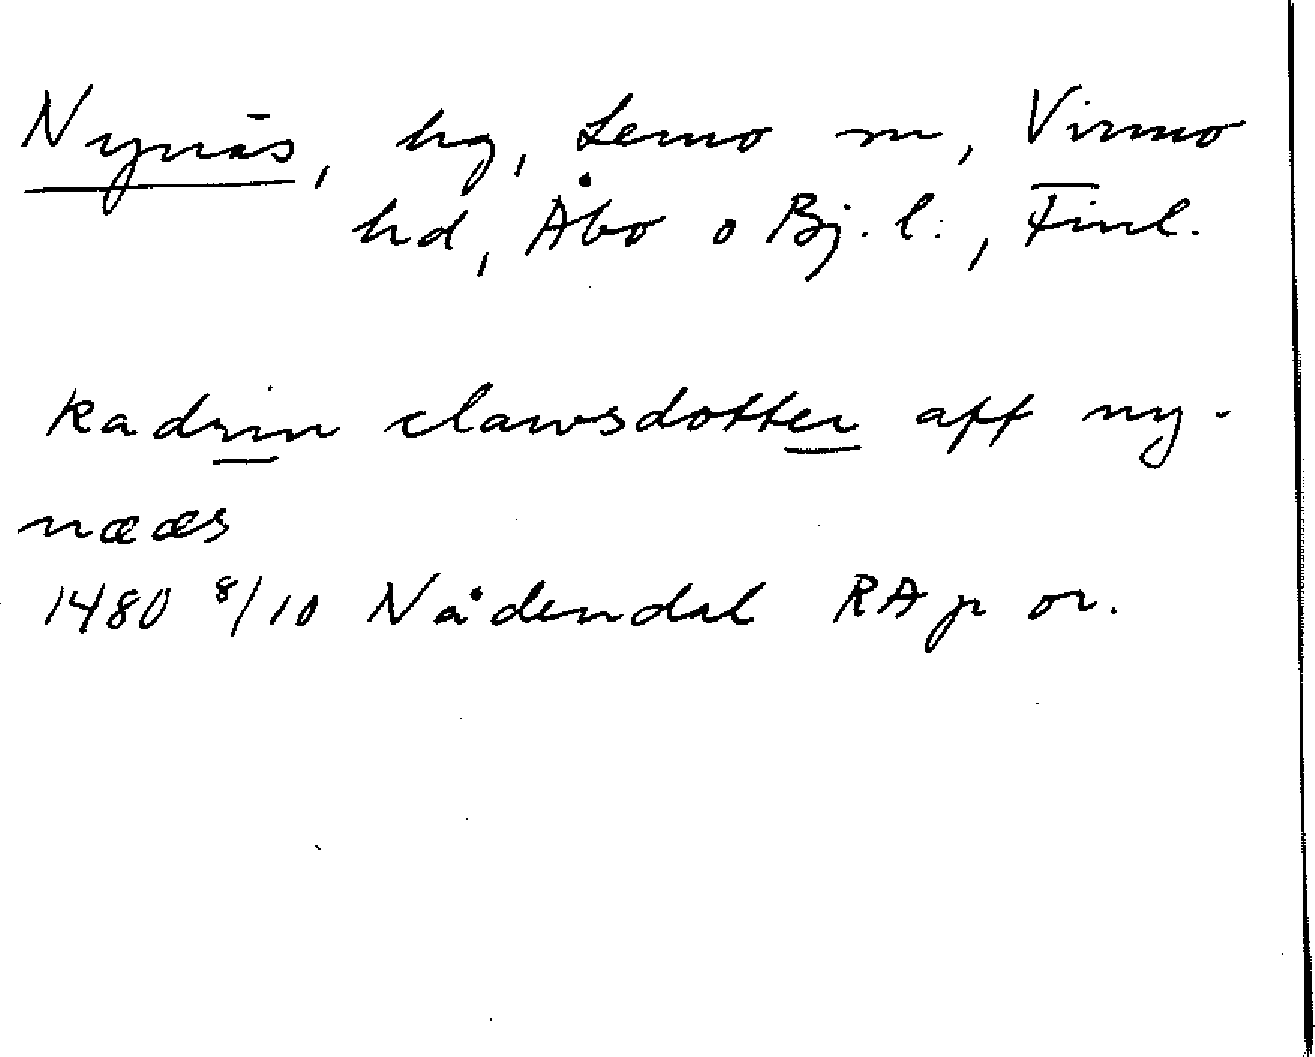 Nynäs, hg, Lemo sn, Virmo
hd, Åbo o Bj. l., Finl.
kadrin clawsdotter aff ny-
nææs
1480 8/10 Nådendal RA p or.